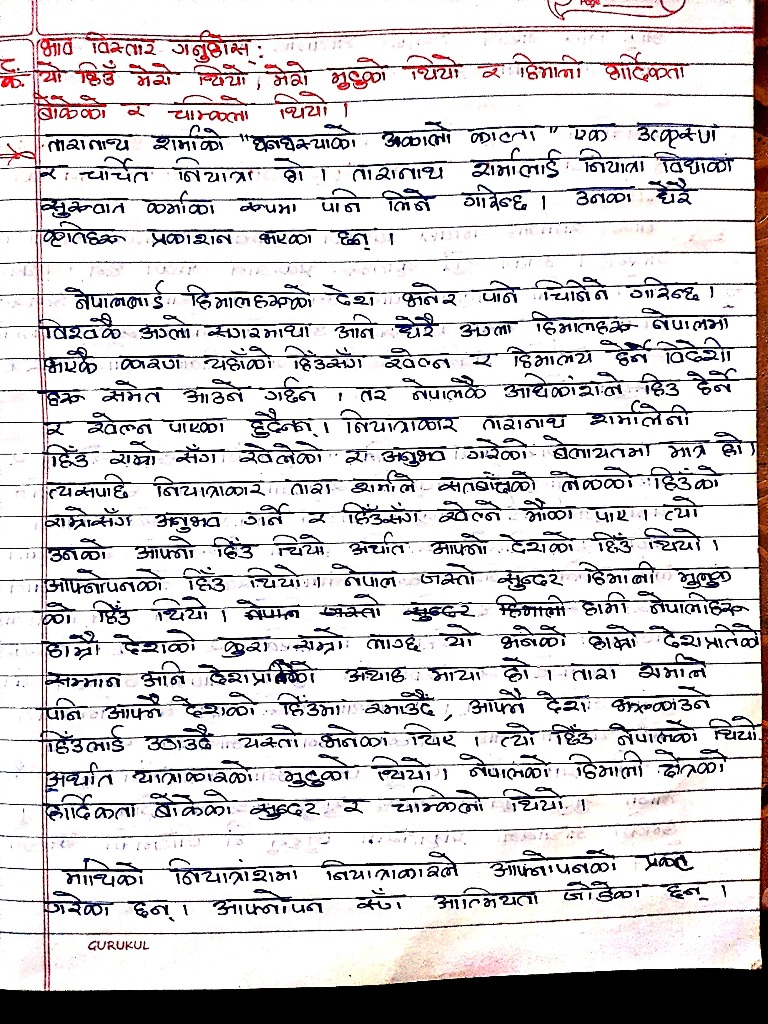 Page
भाव विस्तार गर्नुहोस् :
क. यो हिउँ मेरो थियो, मेरो मुटुको थियो र हिमाली हार्दिकता
बोकेको र चम्किलो थियो ।
तारानाथ शर्माको "घनघस्याको उकालो काट्दा" एक उत्कृष्ट
र चर्चित नियात्रा हो । तारानाथ शर्मालाई नियात्रा विधाका
सुरुवात कर्माका रुपमा पनि लिने गरिन्छ । उनका धेरै
कृतिहरु प्रकाशन भएका छन् ।
नेपाललाई हिमालहरुको देश भनेर पनि चिनिने गरिन्छ ।
विश्वकै अग्लो सगरमाथा अनि धेरै अग्ला हिमालहरु नेपालमा
भएकै कारण यहाँको हिउँसँग खेल्न र हिमालय हेर्न विदेशी
हरु समेत आउने गर्छन । तर नेपालकै अधिकांशले हिउ हेर्न
र खेल्न पाएका हुदैनन् । नियात्राकार तारानाथ शर्मालेनी
हिउँ राम्रो सँग खेलेको र अनुभव गरेको बेलायतमा मात्र हो ।
त्यसपछि नियात्राकार तारा शर्माले सतबाँझको लेकको हिउँको
राम्रोसँग अनुभव गर्ने र हिउँसँग खेल्ने मौका पाए । त्यो
उनको आफ्नो हिउँ थियो अर्थात आफ्नो देशको हिउँ थियो ।
आफ्नोपनको हिउँ थियो । नेपाल जस्तो सुन्दर हिमाली मुलुक
को हिउँ थियो । नेपाल जस्तो सुन्दर हिमाली हामी नेपालीहरु
हाम्रो देशको कुरा राम्रो लाग्छ यो भनेको हाम्रो देशप्रतिको
सम्मान अनि देशप्रतिको अथाह माया हो । तारा शर्माले
पनि आफ्नै देशको हिउँमा रमाउदै, आफ्नै देश झल्काउने
हिउँलाई उठाउदै यस्तो भनेका थिए । त्यो हिउँ नेपालको थियो
अर्थात यात्राकारको मुटुको थियो । नेपालको हिमाली क्षेत्रको
हार्दिकता बोकेको सुन्दर र चम्किलो थियो ।
माथिको नियात्रांशमा नियात्राकारले आफ्नोपनको प्रकट
गरेका छन् । आफ्नोपन सँग आत्मियता जोडेका छन् ।
GURUKUL